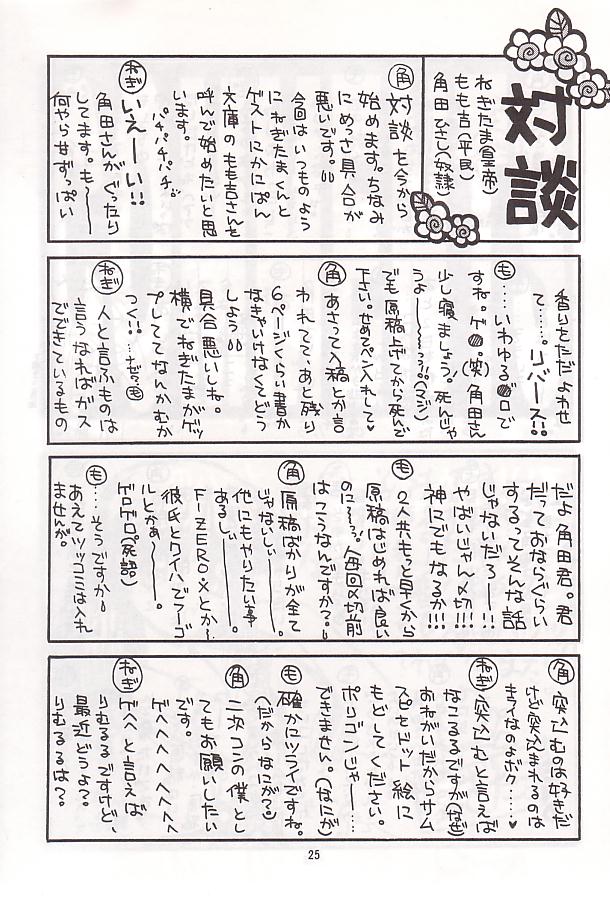 対談
ねぎたま(皇帝)
もも吉(平民)
角田ひさし(奴隷)
角 対談を今から
始めます。ちなみ
にめっさ具合が
悪いです。
今回はいつものよう
にねぎたまくんと
ゲストにかにぱん
文庫のもも吉さんを
呼んで始めたいと思
います。
パチパチパチ。
ねぎ いえーい!!
角田さんがぐったり
してます。も〜
何やらせずっぱい
香りただよわせ
て……リバース!!
も …いわゆる●ロで
すね。ゲ●。(笑)角田さん
少し寝ましょう。死んじゃ
うよ〜〜っっ!?(マジ)
でも原稿上げてから死んで
下さい。せめてペン入れして♥
角 あさって入稿とか言
われてて、あと残り
6ページくらい書か
なきゃいけなくてどう
しよう
具合悪いしね。
横でねぎたまがゲッ
プしててなんかむか
つく!! …なぜっも
ねぎ 人と言ふものは
言うなればガス
でできているもの
だよ角田君。君
だっておならぐらい
するってそんな話
じゃないだろー!!
やばいじゃん〆切!!!
神にでもなるか!!!
も 2人共もっと早くから
原稿はじめれば良い
のに〜っっ!?毎回〆切前
はこうなんですか?
角 原稿ばかりが全て
じゃないしぃ――。
他にもやりたい事
あるしぃ――。
F-ZERO・Xとか〜
彼氏とワイハでフーゴ
ルとかぁ〜――。
ゲロゲロ。(死語。)
も ……そうですか
あえてツッコミは入れ
ませんが。
角 突込むのは好きだ
けど突込まれるのは
キライなのよボク……♥
ねぎ 突込むと言えば
なこるるですが(なぜ)
おねがいだからサム
スピをドット絵に
もどしてください。
ポリゴンじゃ――…
できません。(なにが)
も 確かにツライですね。
(だからなにが?)
角 二次コンの僕とし
てもお願いしたい
です。
ゲヘヘヘヘヘヘヘ
ねぎ ゲヘヘと言えば
りむるるですけど、
最近どうよ?。
りむるるは?。
25